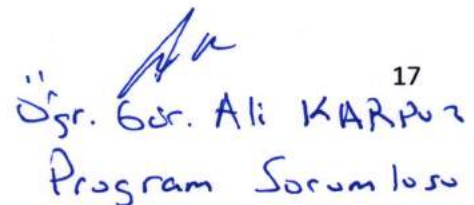 17
Öğr. Gör. Ali KARPUZ
Program Sorumlusu